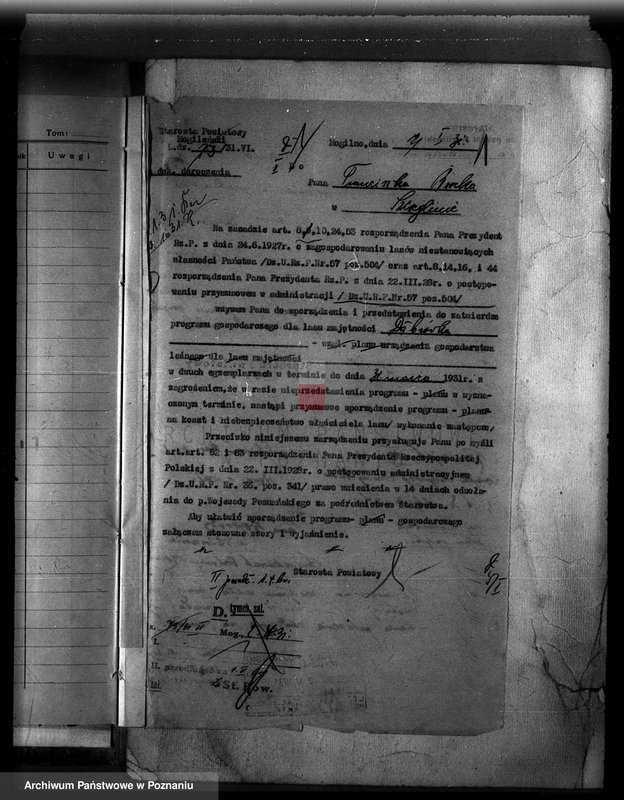 Tom:
Uwagi
Starosta Powiatowy
Mogileński
L.dz. /31.VI.
dok. doręczenia
Mogilno, dnia
Pana Franciszka
w
Na zasadzie art. 8, ,10,24,53 rozporządzenia Pana Prezydenta
Rz.P. z dnia 24.6.1927r. o zagospodarowaniu lasów niestanowiących
własności Państwa /Dz.U.Rz.P.Nr.57 poz.504/ oraz art.8,14,16, i 44
rozporządzenia Pana Prezydenta Rz.P. z dnia 22.III.28r. o postępo-
waniu przymusowem w administracji / Dz.U.R.P.Nr.57 poz.504/
wzywam Pana do sporządzenia i przedstawienia do zatwierdze
programu gospodarczego dla lasu majętności Dąbrówka
- wzgl. planu urządzenia gospodarstwa
leśnego dla lasu majętności
w dwuch egzemplarzach w terminie do dnia marca 1931r. z
zagrożeniem, że w razie nieprzedstawienia programu - planu w wyzna-
czonym terminie, nastąpi przymusowe sporządzenie programu - planu
na koszt i niebezpieczeństwo właściciela lasu/ wykonanie zastępcze/
Przeciwko niniejszemu zarządzeniu przysługuje Panu po myśli
art.art. 82 i 83 rozporządzenia Pana Prezydenta Rzeczypospolitej
Polskiej z dnia 22. III.1928r. o postępowaniu administracyjnem
/ Dz.U.R.P. Nr. 36. poz. 341/ prawo wniesienia w 14 dniach odwoła-
nia do p.Wojewody Poznańskiego za pośrednictwem Starostwa.
Aby ułatwić sporządzenie programu- planu - gospodarczego
załączam stosowne wzory i wyjaśnienie.
Starosta Powiatowy
D. tymcz. zał.
Mog.,
I.
II.
St. Pow.
Archiwum Państwowe w Poznaniu